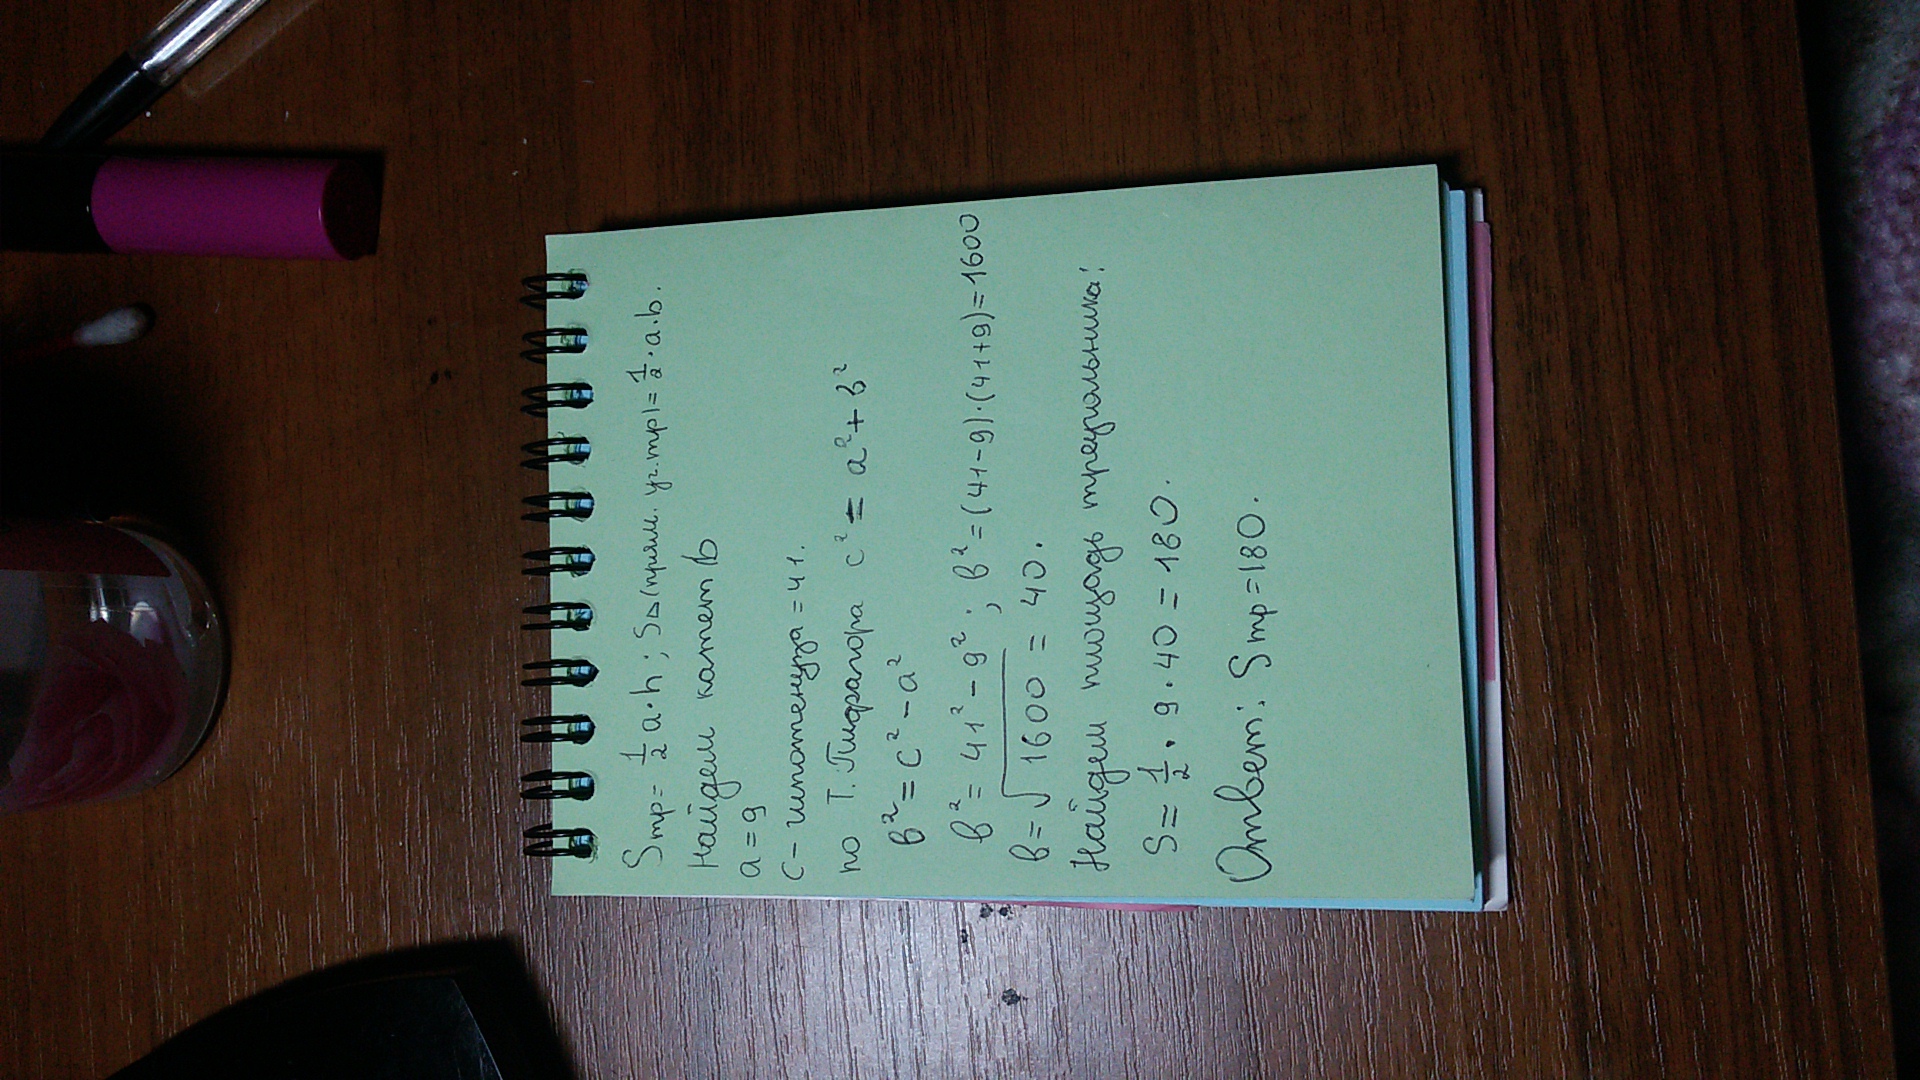 Sтр = 1/2 a · h ; S△(прям. уг. тр) = 1/2 · a · b.
Найдем катет b
a = 9
c – гипотенуза = 41.
по Т. Пифагора c² = a² + b²
b² = c² – a²
b² = 41² – 9² ; b² = (41 – 9) · (41 + 9) = 1600
b = √1600 = 40.
Найдем площадь треугольника:
S = 1/2 · 9 · 40 = 180.
Ответ: Sтр = 180.